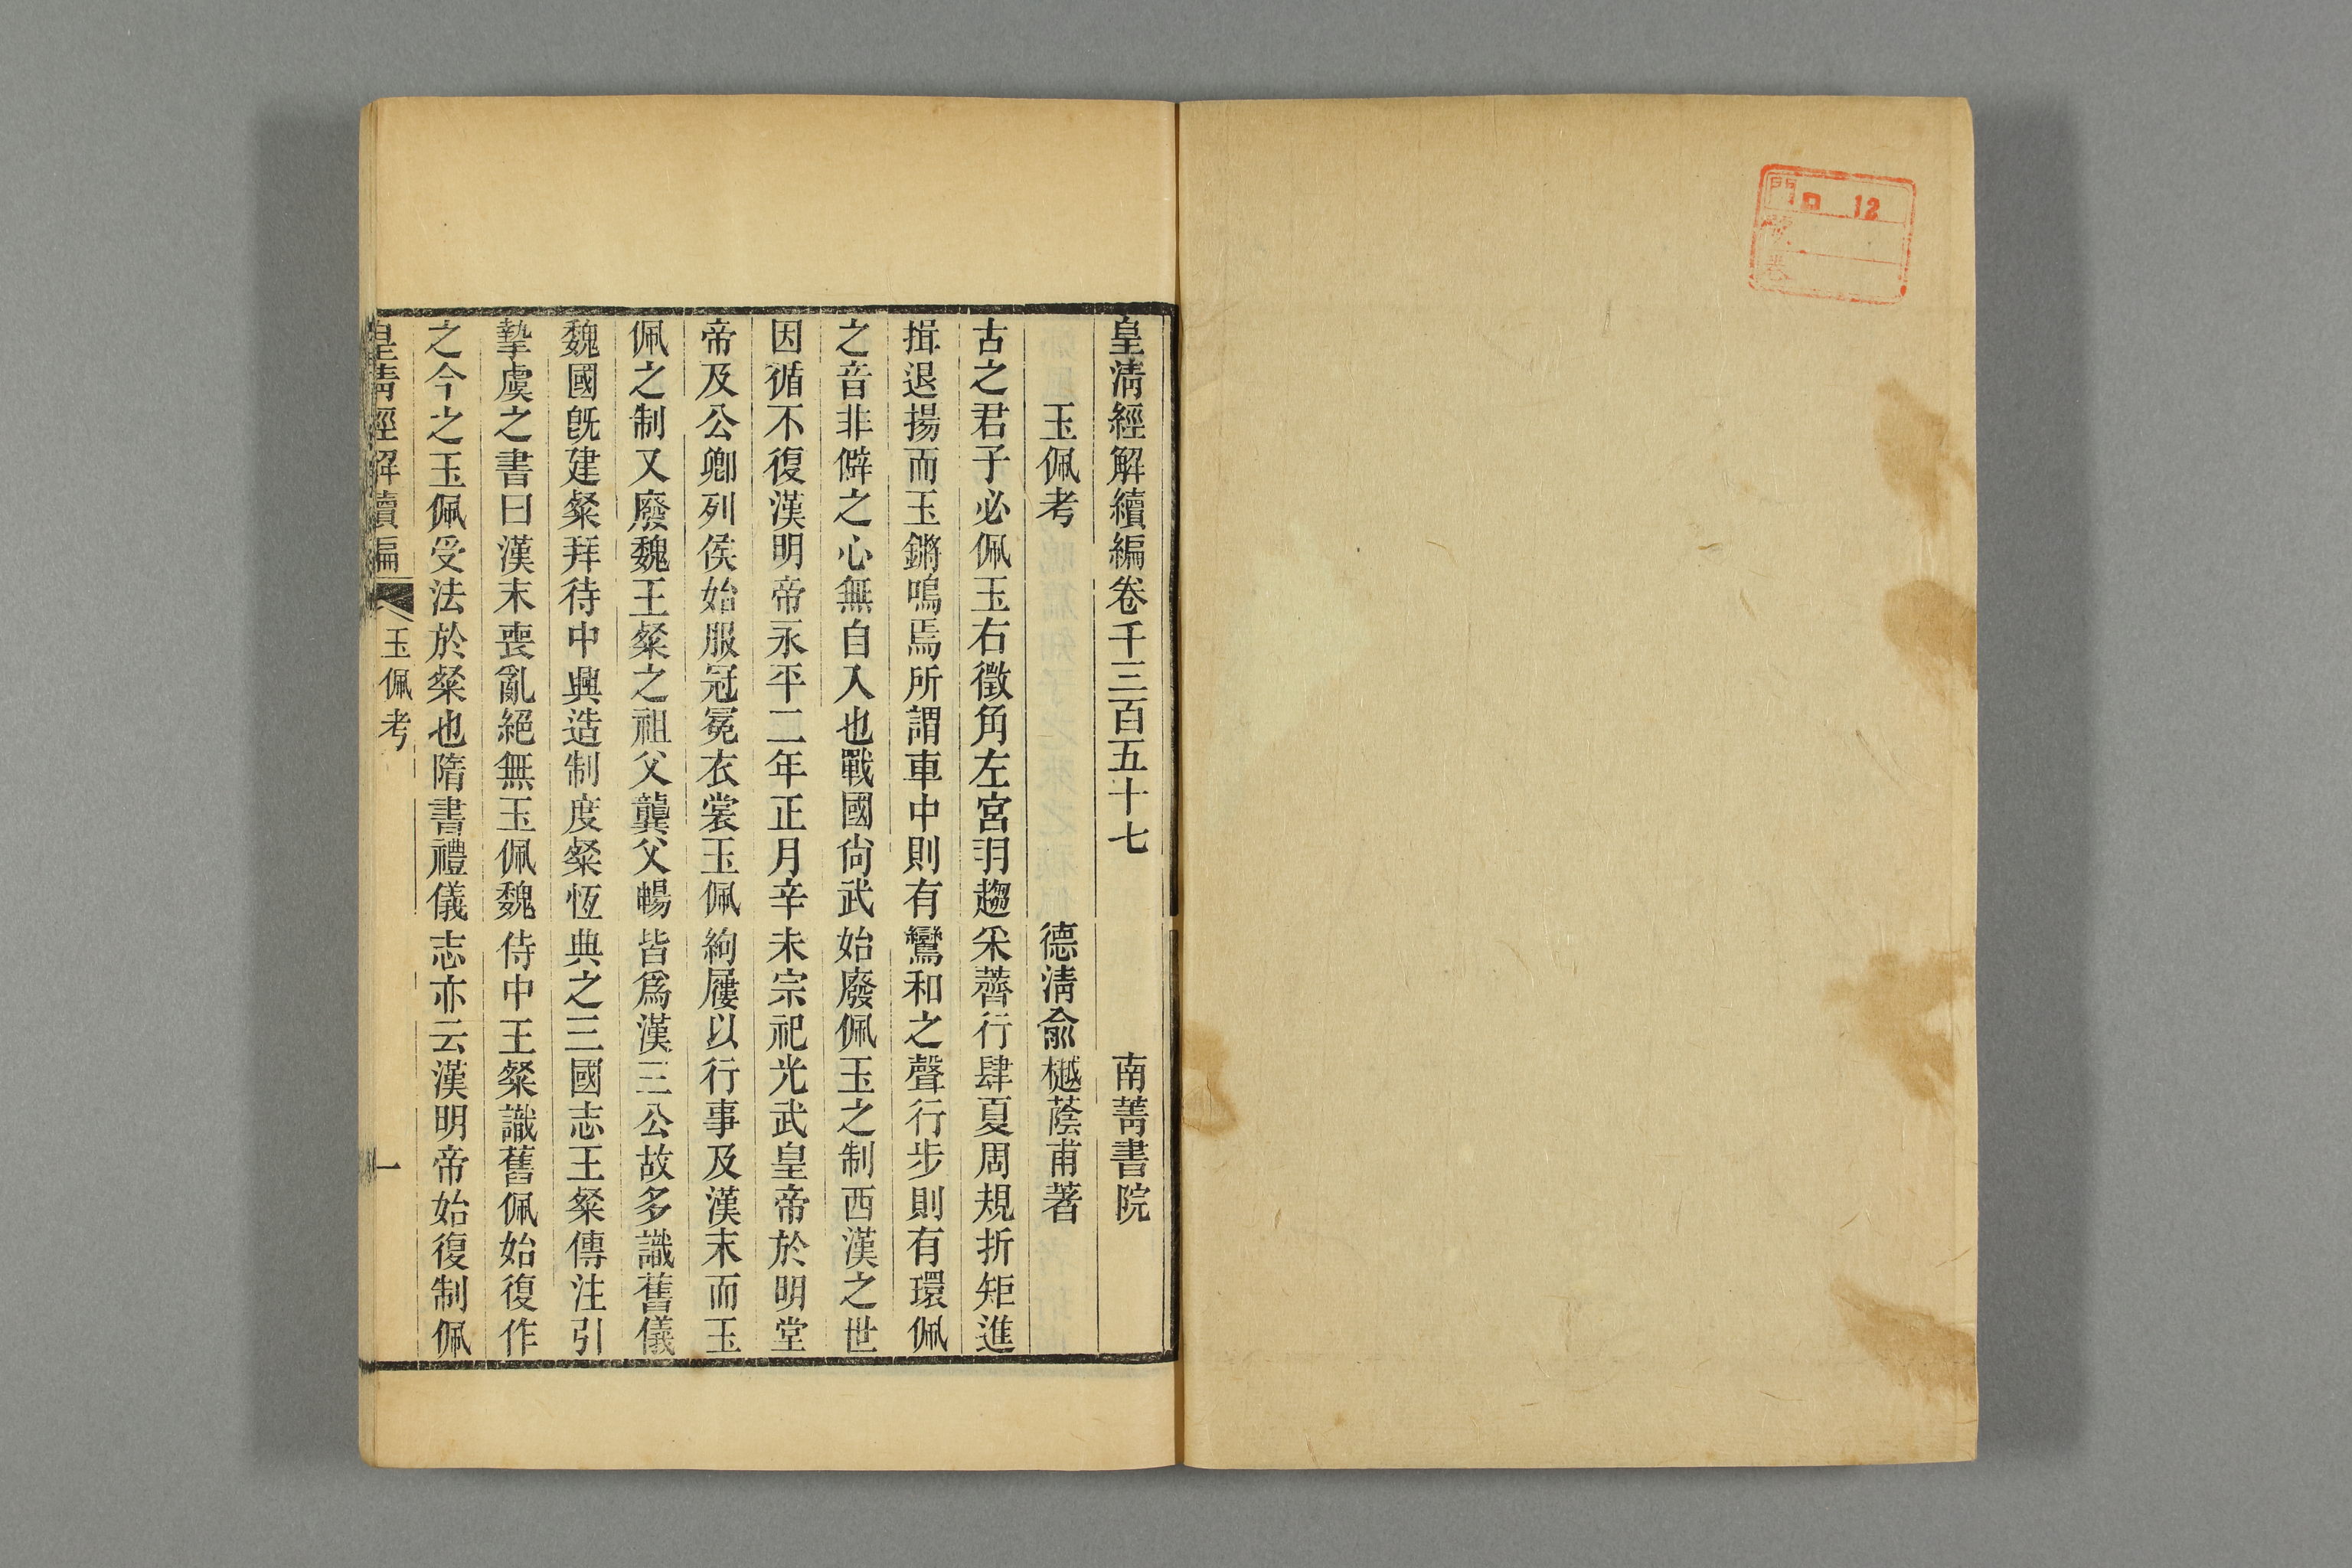 門 ロ 12
號
卷
皇淸經解續編卷千三百五十七 南菁書院
玉佩考 德淸俞樾蔭甫著
古之君子必佩玉右徵角左宮羽趨采薺行肆夏周規折矩進
揖退揚而玉鏘鳴焉所謂車中則有鸞和之聲行步則有環佩
之音非僻之心無自入也戰國尙武始廢佩玉之制西漢之世
因循不復漢明帝永平二年正月辛未宗祀光武皇帝於明堂
帝及公卿列侯始服冠冕衣裳玉佩絇屨以行事及漢末而玉
佩之制又廢魏王粲之祖父龔父暢皆爲漢三公故多識舊儀
魏國旣建粲拜待中興造制度粲恆典之三國志王粲傳注引
摯虞之書曰漢末喪亂絕無玉佩魏侍中王粲識舊佩始復作
之今之玉佩受法於粲也隋書禮儀志亦云漢明帝始復制佩
皇淸經解續編 玉佩考 一